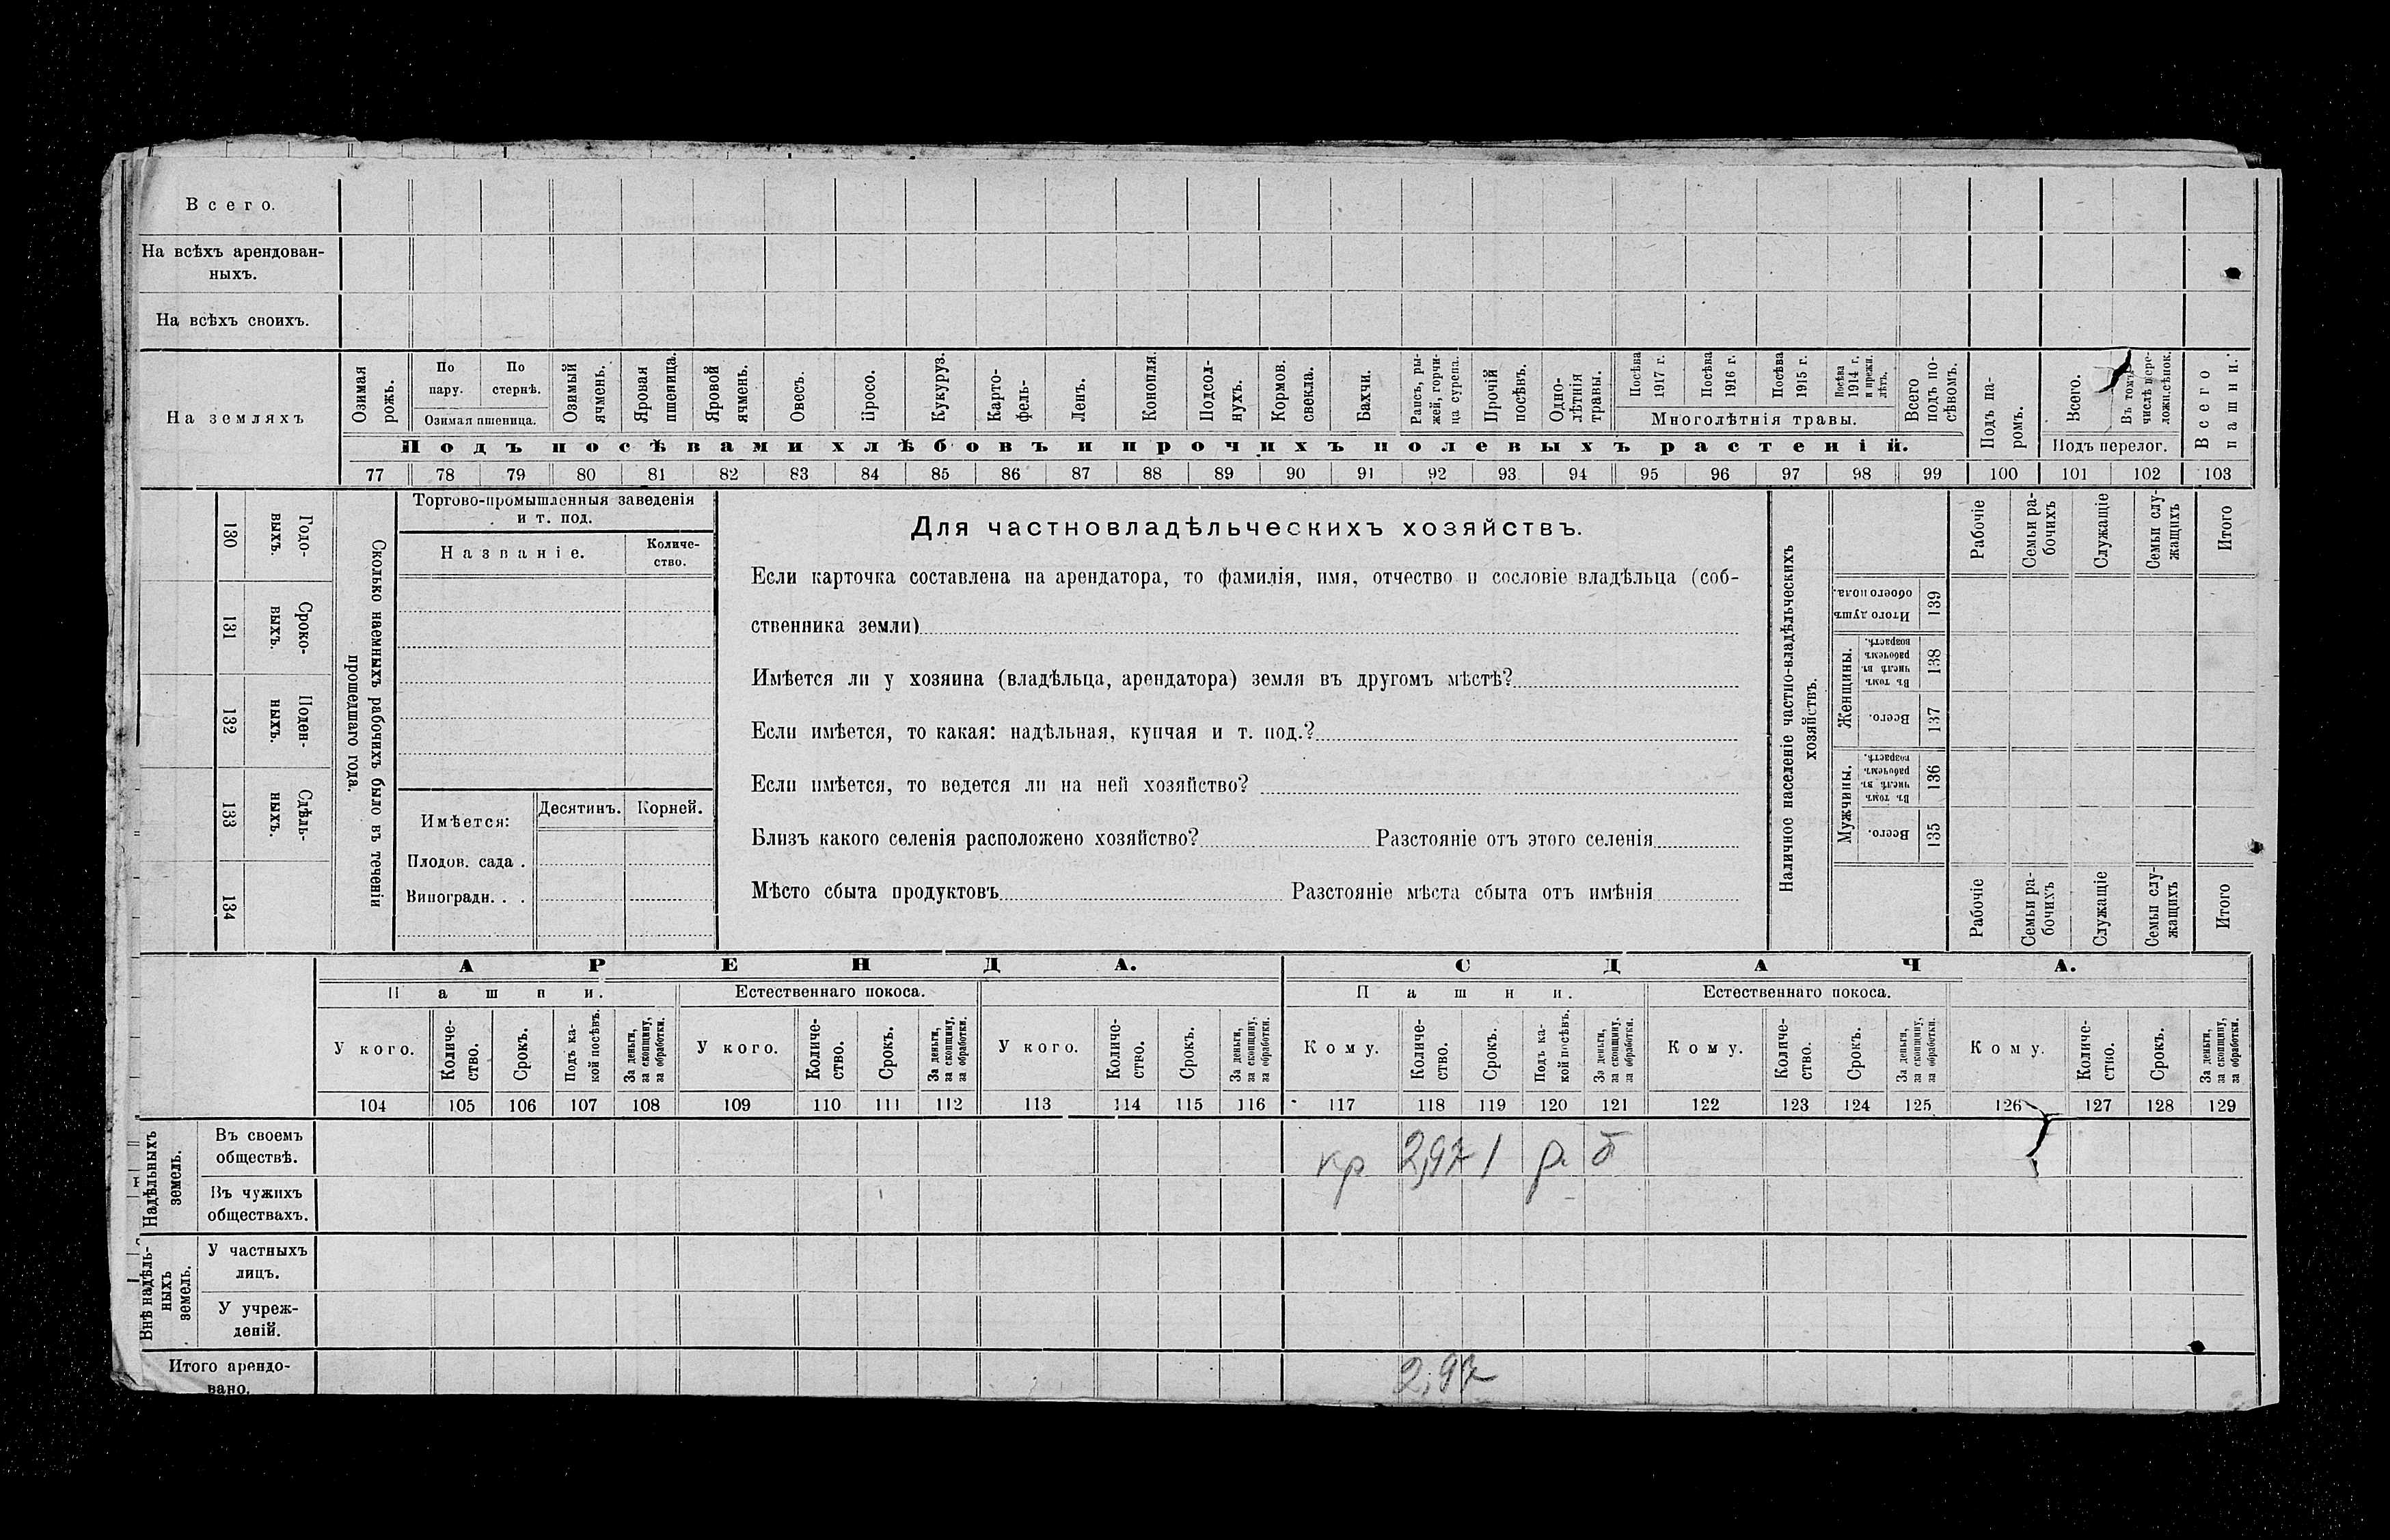 Всего.
На всѣхъ арендован-
ныхъ.
На всѣхъ своихъ.
На земляхъ
Озимая рожь.
По пару.
По стернѣ.
Озимая пшеница.
Озимый ячмень.
Яровая пшеница.
Яровой ячмень.
Овесъ.
Просо.
Кукуруз.
Карто-
фель-
Ленъ.
Конопля.
Подсол-
нухъ.
Кормов. свекла.
Бахчи.
Рапсъ, ры-
жей, горчи-
ца сурепа.
Прочій посѣвъ.
Одно-
лѣтнія травы.
Посѣва 1917 г.
Посѣва 1916 г.
Посѣва 1915 г.
Посѣва 1914 г. и прежн. лѣтъ.
Многолѣтнія травы.
Всего подъ по-
сѣвомъ.
Подъ посѣвами хлѣбовъ и прочихъ полевыхъ растеній.
Подъ па-
ромъ.
Всего.
Въ томъ числѣ пере-
ложн.сѣнок.
Подъ перелог.
Всего пашни.
77 78 79 80 81 82 83 84 85 86 87 88 89 90 91 92 93 94 95 96 97 98 99 100 101 102 103
130 Годо-
выхъ.
131 Сроко-
выхъ.
132 Поден-
ныхъ.
133 Сдѣль-
ныхъ.
134
Сколько наемныхъ рабочихъ было въ теченіи
прошедшаго года.
Торгово-промышленныя заведенія
и т. под.
Названіе.
Количе-
ство.
Имѣется:
Десятинъ.
Корней.
Плодов. сада .
Виноградн. . .
Для частновладѣльческихъ хозяйствъ.
Если карточка составлена на арендатора, то фамилія, имя, отчество и сословіе владѣльца (соб-
ственника земли)
Имѣется ли у хозяина (владѣльца, арендатора) земля въ другомъ мѣстѣ?
Если имѣется, то какая: надѣльная, купчая и т. под.?
Если имѣется, то ведется ли на ней хозяйство?
Близъ какого селенія расположено хозяйство? Разстояніе отъ этого селенія
Мѣсто сбыта продуктовъ Разстояніе мѣста сбыта отъ имѣнія
Наличное населеніе частно-владѣльческихъ
хозяйствъ.
Рабочіе
Семьи ра-
бочихъ
Служащіе
Семьи слу-
жащихъ
Итого
Итого душъ обоего пола. 139
Женщины.
Въ томъ числѣ въ рабочемъ возрастѣ. 138
Всего. 137
Мужчины.
Въ томъ числѣ въ рабочемъ возрастѣ. 136
Всего. 135
Рабочіе
Семьи ра-
бочихъ
Служащіе
Семьи слу-
жащихъ
Итого
АРЕНДА. СДАЧА.
Пашни. Естественнаго покоса. Пашни. Естественнаго покоса.
У кого.
Количе-
ство.
Срокъ.
Подъ ка-
кой посѣвъ.
За деньги, за скопщину, за обработки.
У кого.
Количе-
ство.
Срокъ.
За деньги, за скопщину, за обработки.
У кого.
Количе-
ство.
Срокъ.
За деньги, за скопщину, за обработки.
Кому.
Количе-
ство.
Срокъ.
Подъ ка-
кой посѣвъ.
За деньги, за скопщину, за обработки.
Кому.
Количе-
ство.
Срокъ.
За деньги, за скопщину, за обработки.
Кому.
Количе-
ство.
Срокъ.
За деньги, за скопщину, за обработки.
104 105 106 107 108 109 110 111 112 113 114 115 116 117 118 119 120 121 122 123 124 125 126 127 128 129
Надѣльныхъ
земель.
Въ своемъ
обществѣ.
кр 2,97 1 р
Въ чужихъ
обществахъ.
Внѣ надѣль-
ныхъ
земель.
У частныхъ
лицъ.
У учреж-
деній.
Итого арендо-
вано.
2,97